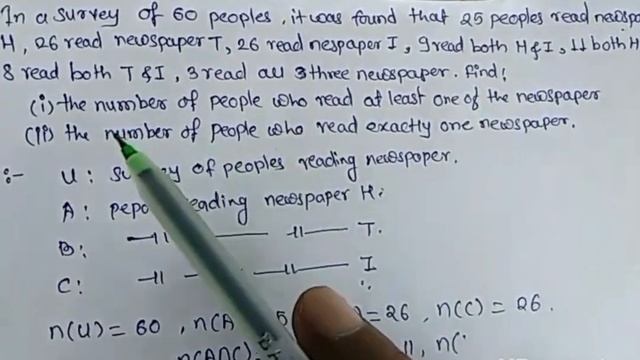 In a survey of 60 peoples, it was found that 25 peoples read newspa
H, 26 read newspaper T, 26 read nespaper I, 9 read both H & I, 11 both H
8 read both T & I, 3 read all 3 three newspaper. Find:
(i) the number of people who read at least one of the newspaper
(ii) the number of people who read exactly one newspaper.
:- U: survey of peoples reading newspaper.
A: reading newspaper H.
B: —11 —11— T.
C: —11 —11— I
n(U) = 60, n(A = 26, n(C) = 26.
n(A∩C) 11, n(